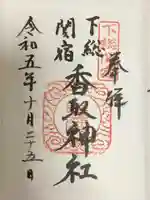 奉拝
下総
関宿
香取神社
令和五年十月二十五日